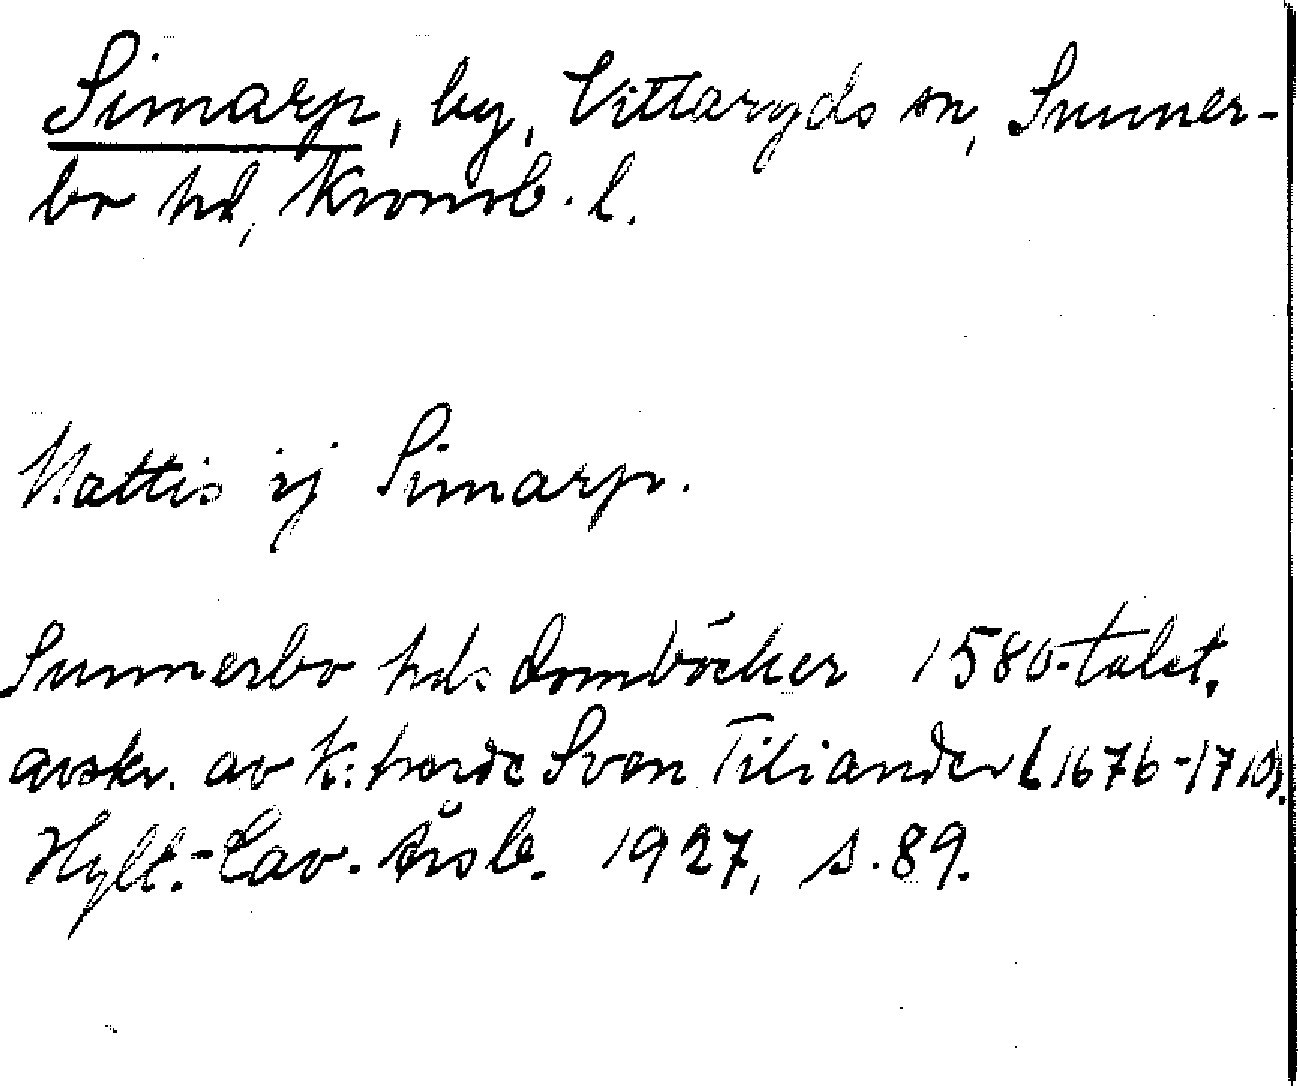 Simarp, by, Vittaryds sn, Sunner-
bo hd, Kronob. l.
Mattis ij Simarp.
Sunnerbo hds domböcker 1580-talet.
avskr. av k:herde Sven Tiliander (1676-1710).
Hylt.-Cav. Årsb. 1927, s. 89.